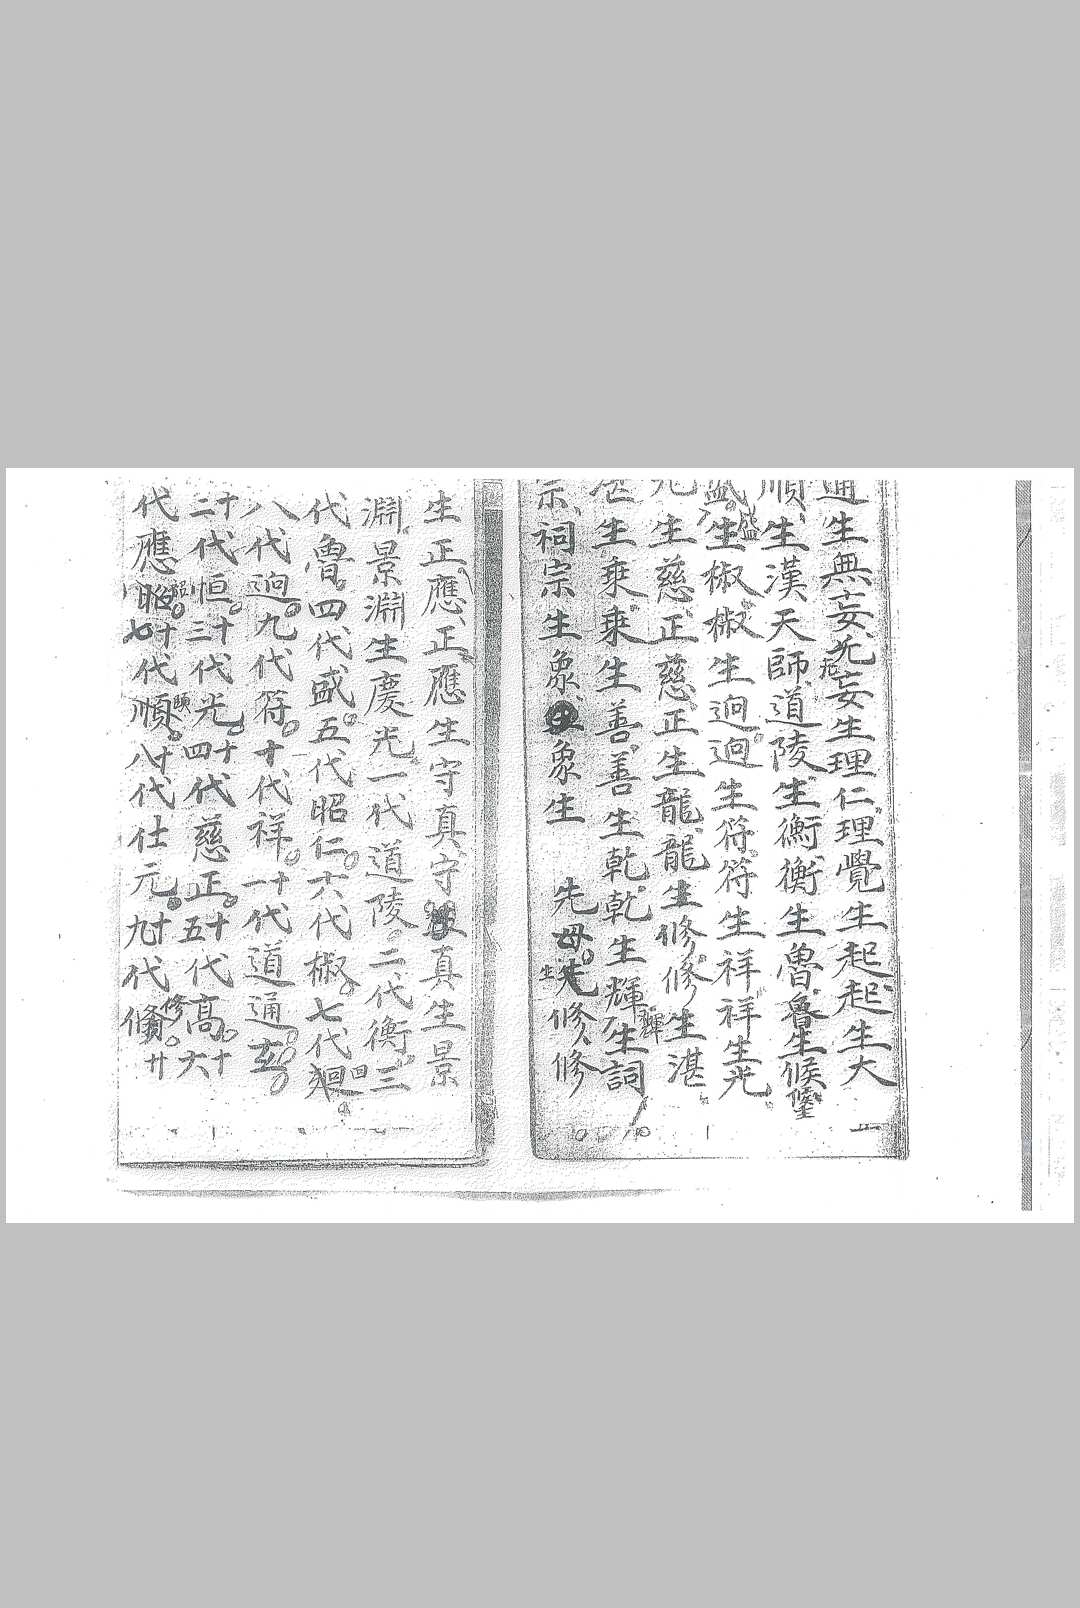 通生無妄无妄生理仁理覺生起起生大
順生漢天師道陵生衡衡生魯魯生
盛生椒椒生迥迥生符符生祥祥生光
光生慈正慈正生龍龍生修修生湛
生乗乗生善善生乾乾生輝生詞
宗祠宗生象象生 先母先修修
生正應正應生守真守真生景
淵景淵生慶光一代道陵二代衡三
代魯四代盛五代昭仁六代椒七代廻回
八代迥九代符十代祥十一代道通玄
十二代恒十三代光十四代慈正十五代高十六
代應昭十七代順十八代仕元十九代修廿